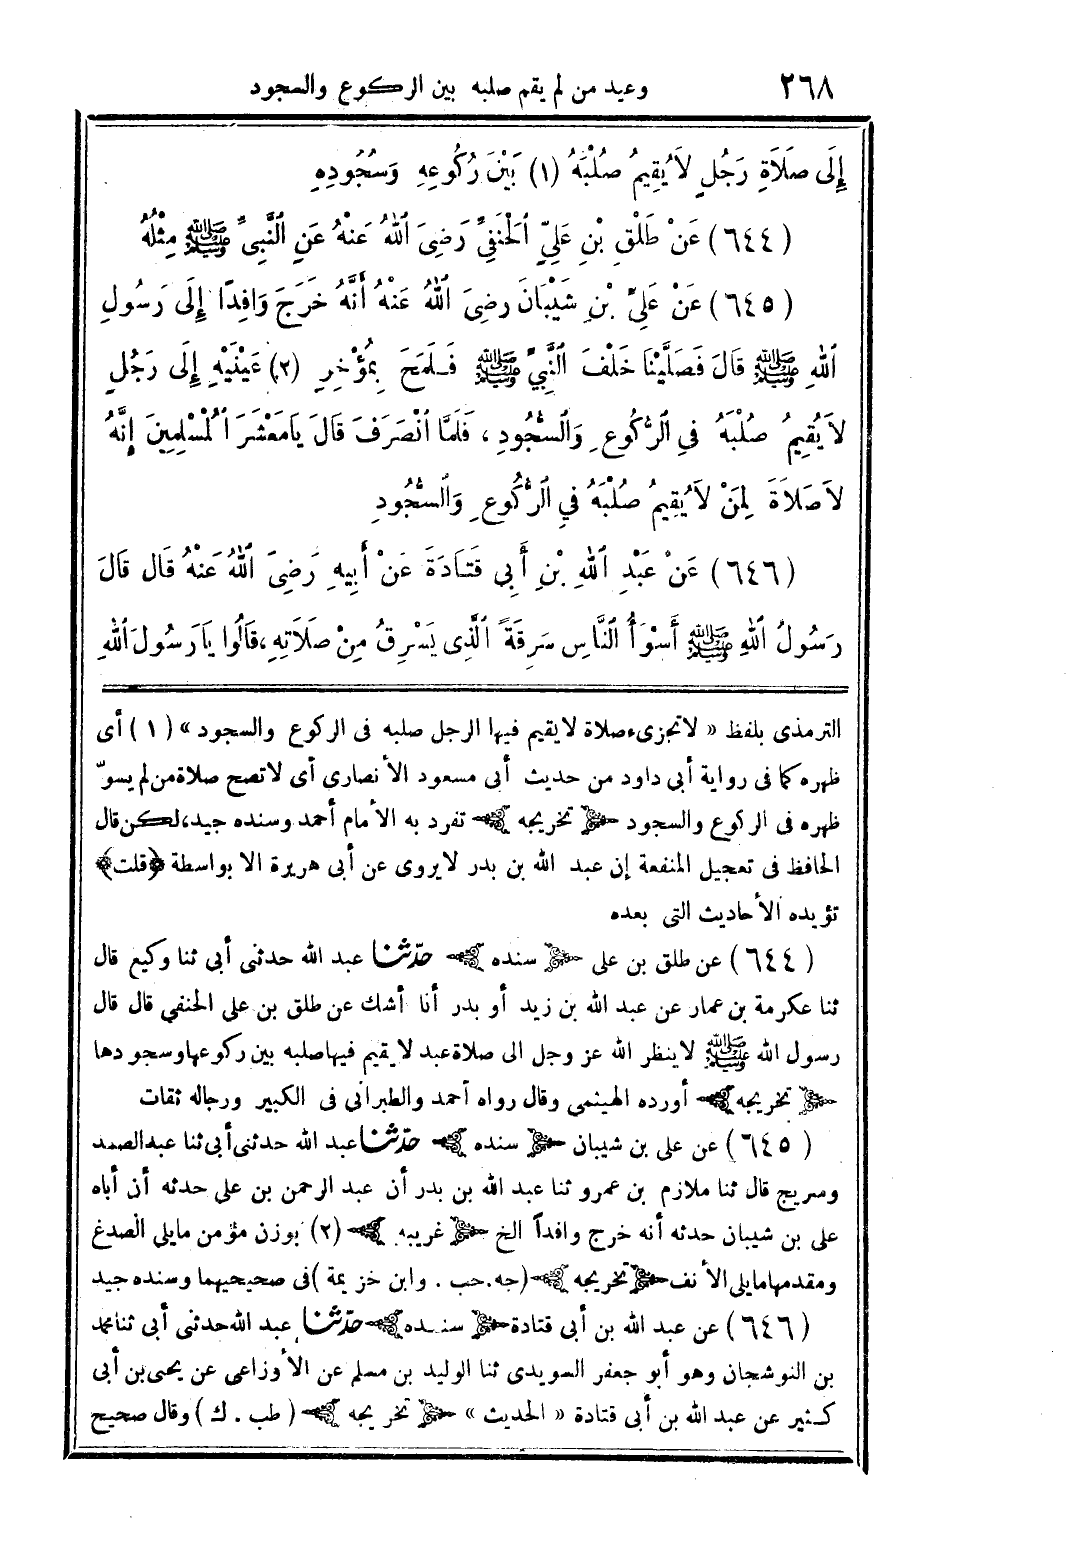 ٢٦٨ وعيد من لم يقم صلبه بين الركوع والسجود
إِلَى صَلَاةِ رَجُلٍ لَا يُقِيمُ صُلْبَهُ (١) بَيْنَ رُكُوعِهِ وَسُجُودِهِ
(٦٤٤) عَنْ طَلْقِ بْنِ عَلِيٍّ الْحَنَفِيِّ رَضِيَ اللهُ عَنْهُ عَنِ النَّبِيِّ ﷺ مِثْلُهُ
(٦٤٥) عَنْ عَلِيِّ بْنِ شَيْبَانَ رضِىَ اللهُ عَنْهُ أَنَّهُ خَرَجَ وَافِدًا إِلَى رَسُولِ
اللهِ ﷺ قَالَ فَصَلَّيْنَا خَلْفَ النَّبِيِّ ﷺ فَلَمَحَ بِمُؤْخِرِ (٢) عَيْنَيْهِ إِلَى رَجُلٍ
لَا يُقِيمُ صُلْبَهُ فِي الرُّكُوعِ وَالسُّجُودِ ، فَلَمَّا انْصَرَفَ قَالَ يَا مَعْشَرَ الْمُسْلِمِينَ إِنَّهُ
لَا صَلَاةَ لِمَنْ لَا يُقِيمُ صُلْبَهُ فِي الرُّكُوعِ وَالسُّجُودِ
(٦٤٦) عَنْ عَبْدِ اللهِ بْنِ أَبِي قَتَادَةَ عَنْ أَبِيهِ رَضِيَ اللهُ عَنْهُ قَالَ قَالَ
رَسُولُ اللهِ ﷺ أَسْوَأُ النَّاسِ سَرِقَةً الَّذِى يَسْرِقُ مِنْ صَلَاتِهِ ، قَالُوا يَا رَسُولَ اللهِ
الترمذى بلفظ « لاتجزىء صلاة لايقيم فيها الرجل صلبه فى الركوع والسجود » (١) أى
ظهره كما فى رواية أبى داود من حديث أبى مسعود الأنصارى أى لاتصح صلاة من لم يسوّ
ظهره فى الركوع والسجود ﴿ تخريجه ﴾ تفرد به الأمام أحمد وسنده جيد، لكن قال
الحافظ فى تعجيل المنفعة إن عبد الله بن بدر لايروى عن أبى هريرة الا بواسطة ﴿قلت﴾
تؤيده الأحاديث التى بعده
(٦٤٤) عن طلق بن على ﴿ سنده ﴾ حدّثنا عبد الله حدثنى أبى ثنا وكيع قال
ثنا عكرمة بن عمار عن عبد الله بن زيد أو بدر أنا أشك عن طلق بن على الحنفي قال قال
رسول الله ﷺ لاينظر الله عز وجل الى صلاة عبد لايقيم فيها صلبه بين ركوعها وسجودها
﴿ تخريجه ﴾ أورده الهيثمى وقال رواه أحمد والطبرانى فى الكبير ورجاله ثقات
(٦٤٥) عن على بن شيبان ﴿ سنده ﴾ حدّثنا عبد الله حدثنى أبى ثنا عبد الصمد
وسريج قال ثنا ملازم بن عمرو ثنا عبد الله بن بدر أن عبد الرحمن بن على حدثه أن أباه
على بن شيبان حدثه أنه خرج وافداً الخ ﴿ غريبه ﴾ (٢) بوزن مؤمن مايلى الصدغ
ومقدمها مايلى الأنف ﴿ تخريجه ﴾ (جه. حب . وابن خزيمة) فى صحيحيهما وسنده جيد
(٦٤٦) عن عبد الله بن أبى قتادة ﴿ سنده ﴾ حدّثنا عبد الله حدثنى أبى ثنا محمد
بن النوشجان وهو أبو جعفر السويدى ثنا الوليد بن مسلم عن الأوزاعى عن يحيى بن أبى
كثير عن عبد الله بن أبى قتادة « الحديث » ﴿ تخريجه ﴾ (طب . ك) وقال صحيح